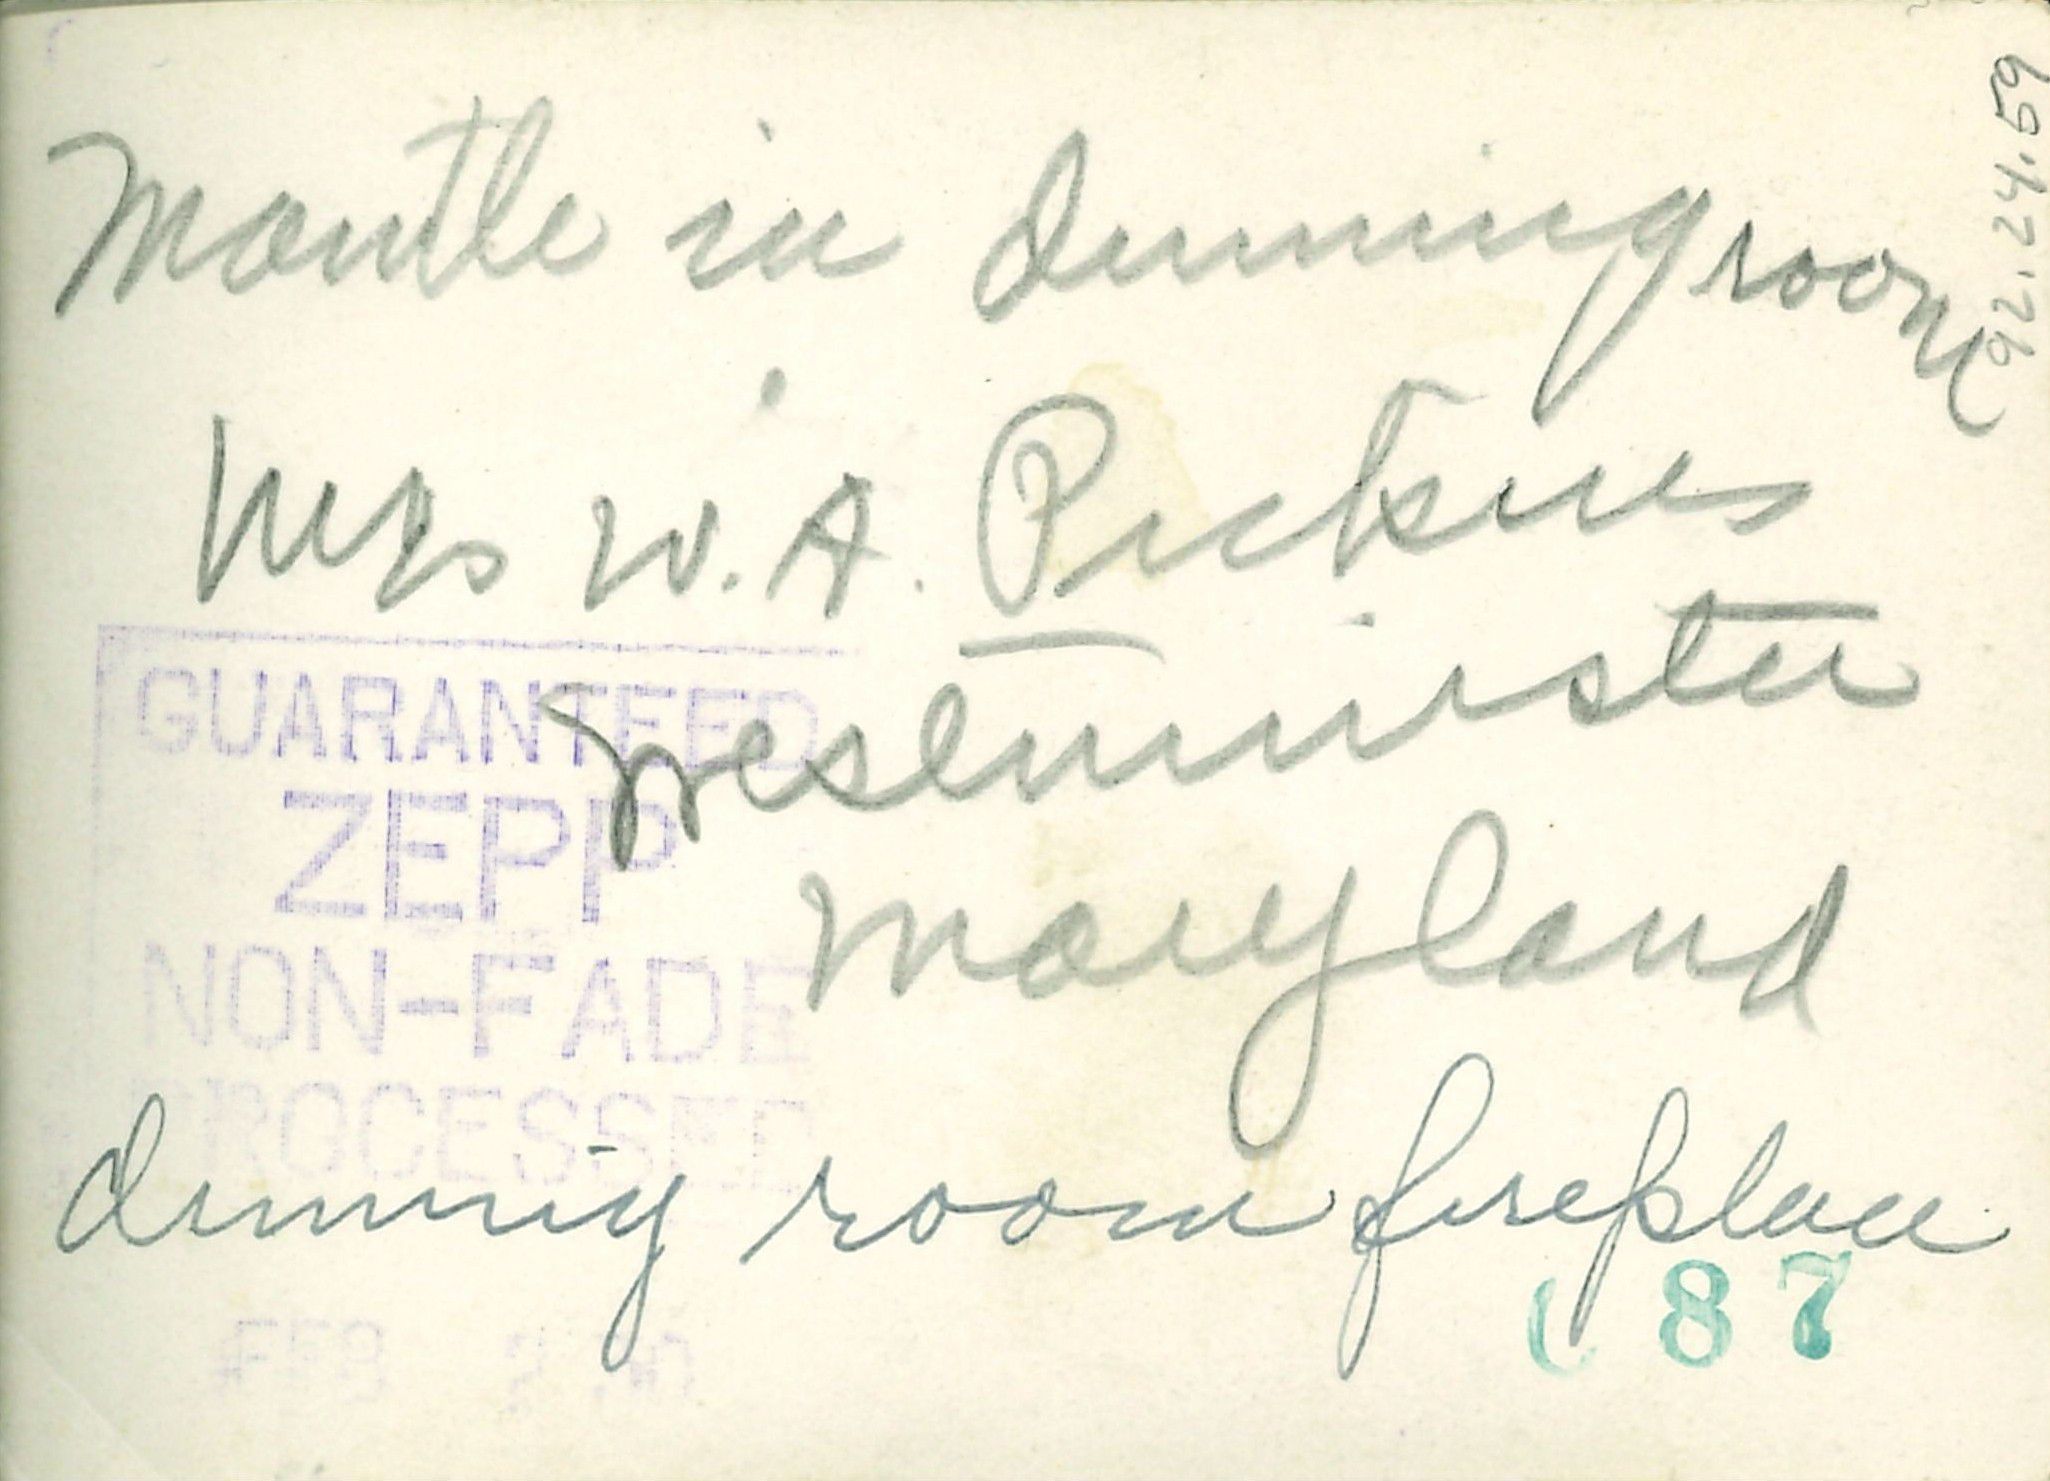 Mantle in dinning room
92.24.59
Mrs W. A. Pickens
Westminster
Maryland
GUARANTEED
ZEPP
NON-FADE
PROCESSED
dinning room fireplace
87
FEB 2